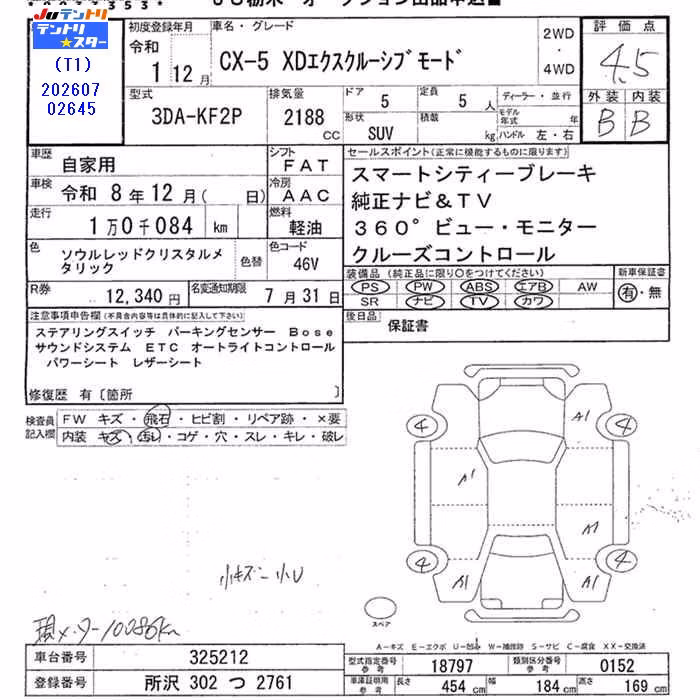 JUテントリ
テントリ★スター
(T1)
202607
02645
初度登録年月
令和
1 12月
車名・グレード
CX-5 XDエクスクルーシブモード
2WD
・
4WD
評価点
4.5
外装 内装
B B
型式
3DA-KF2P
排気量
2188
CC
ドア 5
定員 5 人
形状 SUV
積載 kg
ディーラー・並行
モデル年式 年
ハンドル 左・右
車歴 自家用
シフト FAT
車検 令和 8年12月( 日)
冷房 AAC
走行 1万0千084 km
燃料 軽油
色 ソウルレッドクリスタルメタリック
色替
色コード 46V
R券 12,340円
名変通知期限 7月31日
セールスポイント(正常に機能するものに限ります)
スマートシティーブレーキ
純正ナビ&TV
360°ビュー・モニター
クルーズコントロール
装備品(純正品に限り○をつけてください)
PS PW ABS エアB AW
SR ナビ TV カワ
新車保証書
有・無
後日品 保証書
注意事項申告欄(不具合内容等は具体的に記入して下さい)
ステアリングスイッチ パーキングセンサー Bose
サウンドシステム ETC オートライトコントロール
パワーシート レザーシート
修復歴 有〔箇所 〕
検査員記入欄
FW キズ・飛石・ヒビ割・リペア跡・×要
内装 キズ・汚レ・コゲ・穴・スレ・キレ・破レ
4
A1
4
A1
A1
A1
4
A1
A1
4
小キズ一小U
現メーター10086km
スペア
A-キズ E-エクボ U-凹ミ W-補修跡 S-サビ C-腐食 XX-交換済
車台番号 325212
登録番号 所沢 302 つ 2761
型式指定番号参考 18797
類別区分番号参考 0152
車庫証明用参考 長さ 454 cm 幅 184 cm 高さ 169 cm